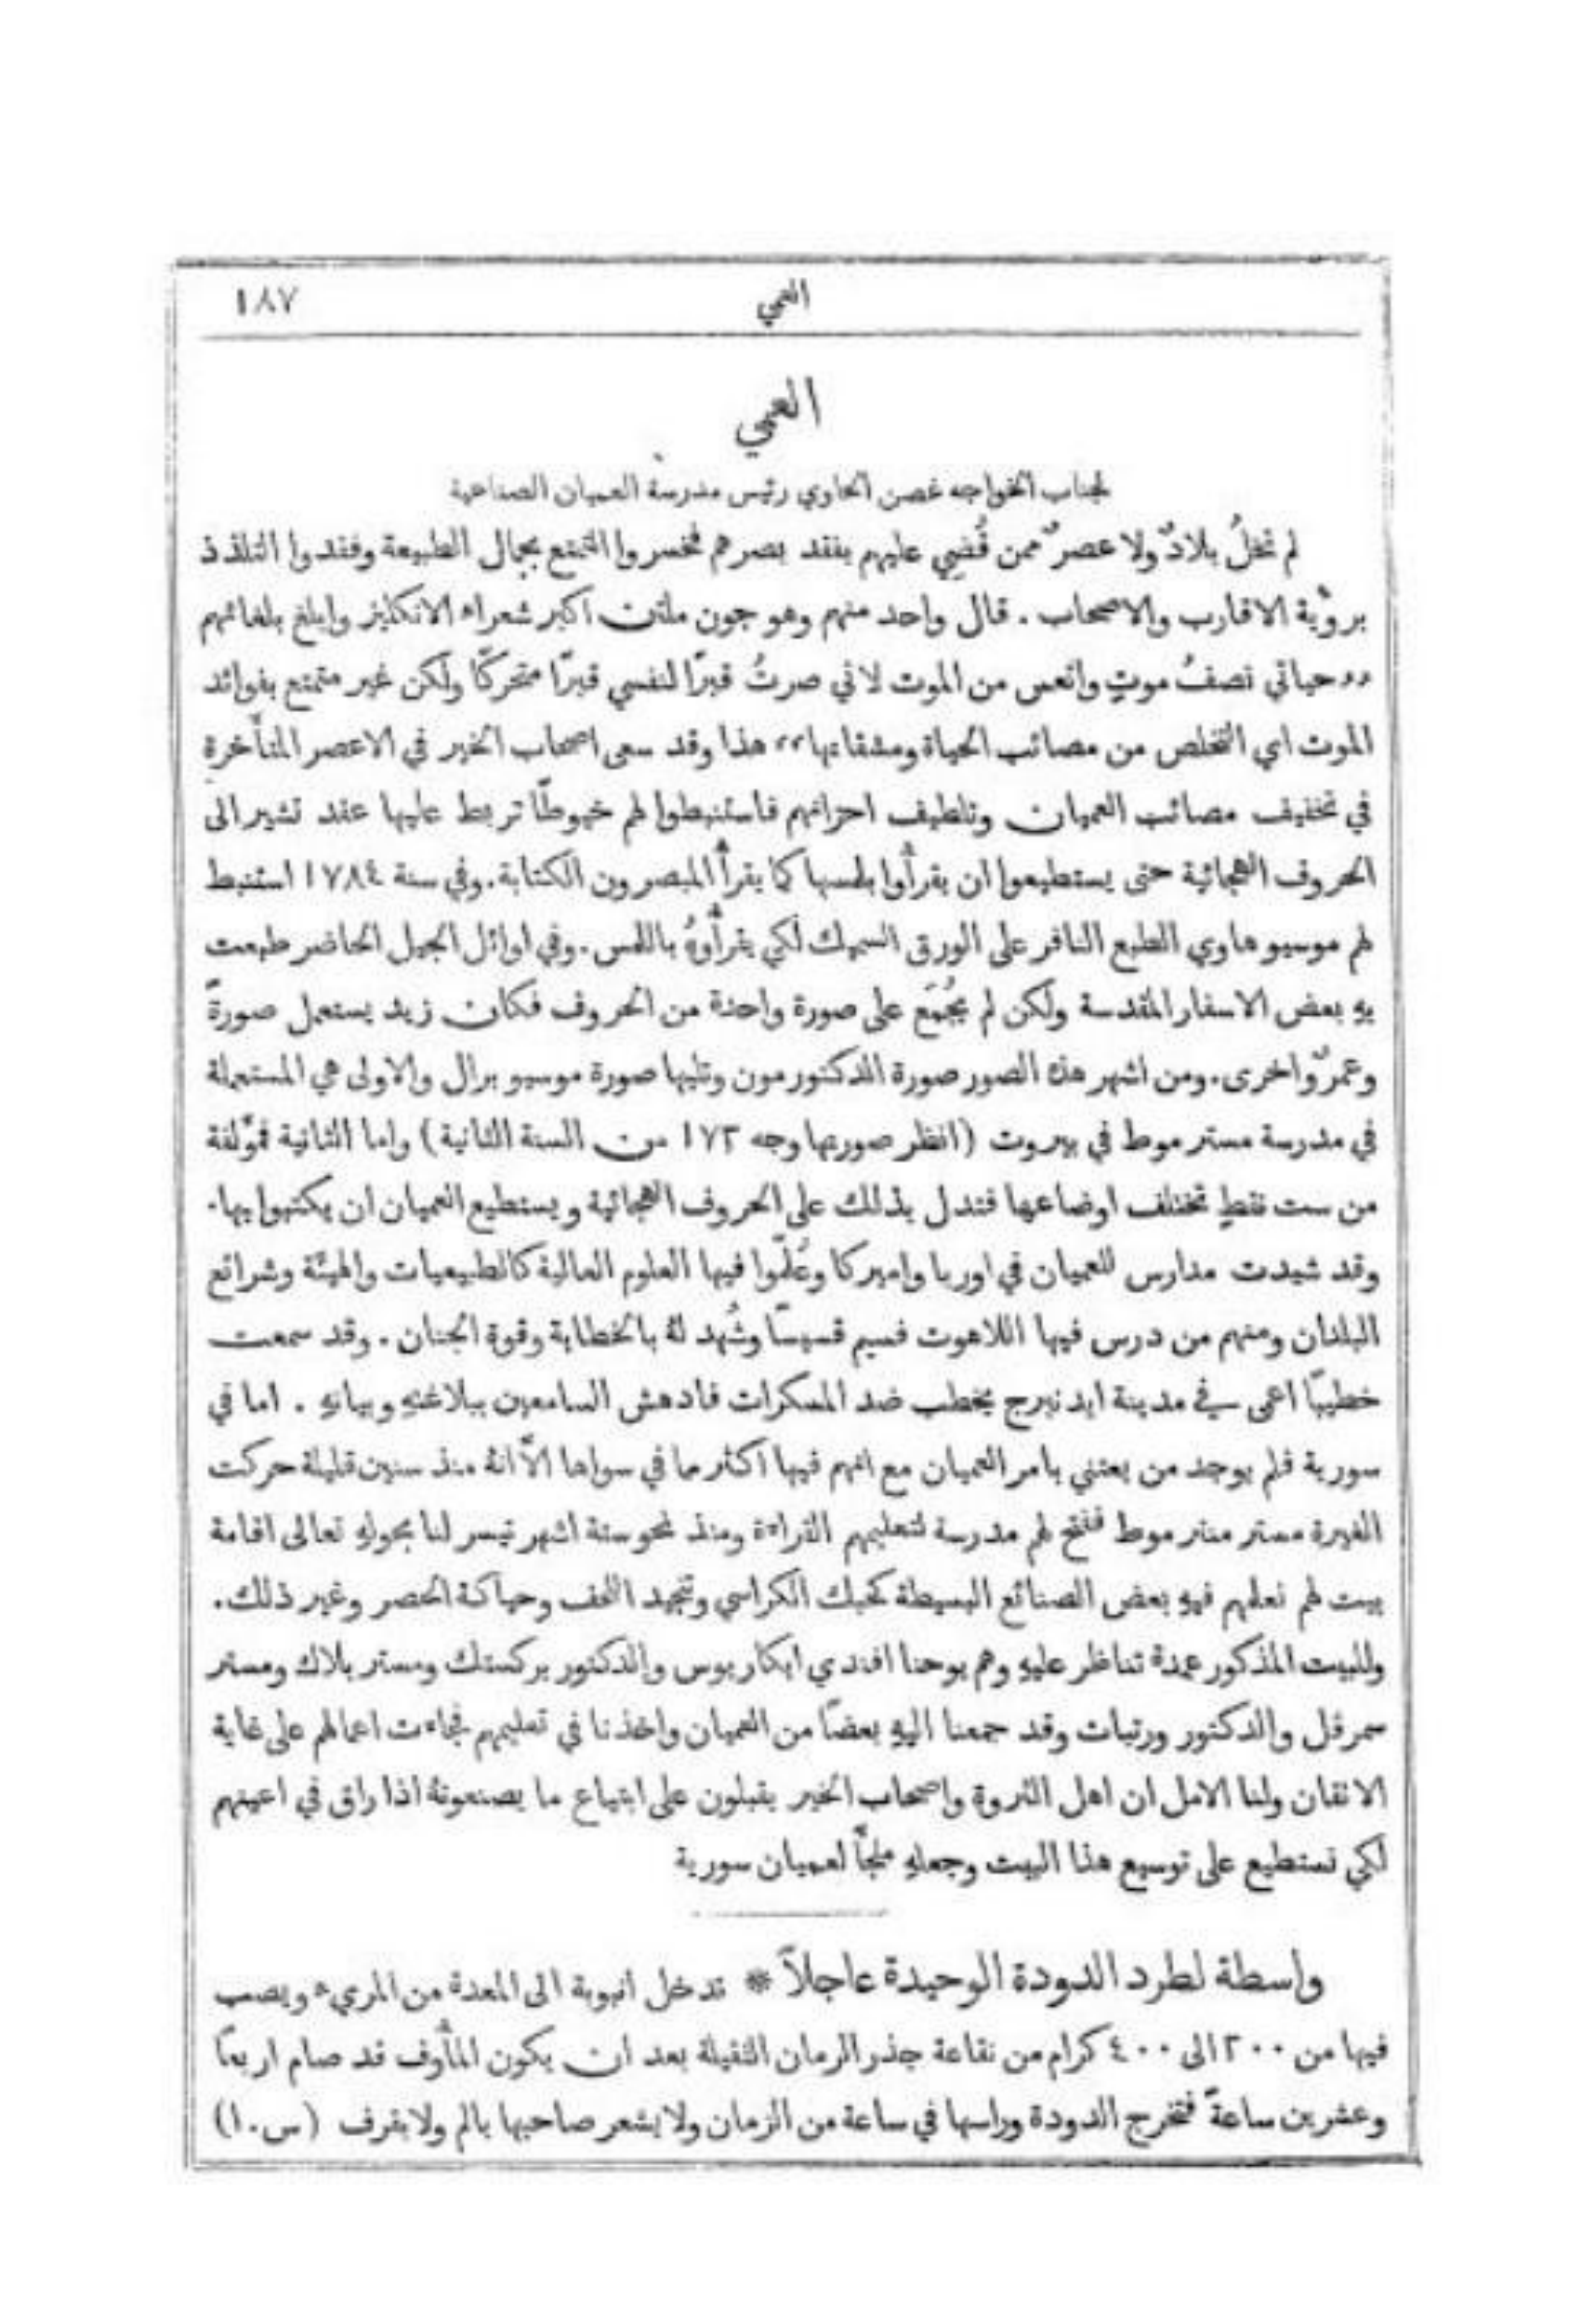 العمي ١٨٧
العمي
لجناب الخواجه غصن الحاوي رئيس مدرسة العميان الصناعية
لم تخلُ بلادٌ ولا عصرٌ ممن قُضِي عليهم بفقد بصرهم فخسروا التمتع بجمال الطبيعة وفقدوا التلذذ
بروية الاقارب والاصحاب . قال واحد منهم وهو جون ملتن اكبر شعراء الانكليز وابلغ بلغائهم
"حياتي نصفُ موتٍ واتعس من الموت لاني صرتُ قبرًا لنفسي قبرًا متحركًا ولكن غير متمتع بفوائد
الموت اي التخلص من مصائب الحياة ومشقاتها" هذا وقد سعى اصحاب الخير في الاعصر المتأخرة
في تخفيف مصائب العميان وتلطيف احزانهم فاستنبطوا لهم خيوطًا تربط عليها عقد تشير الى
الحروف الهجائية حتى يستطيعوا ان يقرأوا بلمسها كما يقرأ المبصرون الكتابة. وفي سنة ١٧٨٤ استنبط
لهم موسيو هاوي الطبع النافر على الورق السميك لكي يقرأوهُ باللمس. وفي اوائل الجيل الحاضر طبعت
بهِ بعض الاسفار المقدسة ولكن لم يُجْمَع على صورة واحدة من الحروف فكان زيد يستعمل صورةً
وعمرٌو اخرى. ومن اشهر هذه الصور صورة الدكتور مون وتليها صورة موسيو برال والاولى هي المستعملة
في مدرسة مستر موط في بيروت (انظر صورتها وجه ١٧٢ من السنة الثانية) واما الثانية فمؤلفة
من ست نقطٍ تختلف اوضاعها فتدل بذلك على الحروف الهجائية ويستطيع العميان ان يكتبوا بها.
وقد شيدت مدارس للعميان في اوربا واميركا وعُلّموا فيها العلوم العالية كالطبيعيات والهيئة وشرائع
البلدان ومنهم من درس فيها اللاهوت فسيم قسيسًا وشُهد لهُ بالخطابة وقوة الجنان . وقد سمعت
خطيبًا اعمى في مدينة ايدنبرج يخطب ضد المسكرات فادهش السامعين ببلاغتهِ وبيانهِ . اما في
سورية فلم يوجد من يعتني بامر العميان مع انهم فيها اكثر مما في سواها الّا انهُ منذ سنين قليلة حركت
الغيرة مستر منتر موط ففتح لهم مدرسة لتعليمهم القراءة ومنذ نحو ستة اشهر تيسر لنا بحولهِ تعالى اقامة
بيت لهم نعلمهم فيهِ بعض الصنائع البسيطة كحبك الكراسي وتنجيد اللحف وحياكة الحصر وغير ذلك.
وللبيت المذكور عمدة تناظر عليهِ وهم يوحنا افندي ابكاريوس والدكتور بركستك ومستر بلاك ومستر
سمرفل والدكتور ورتبات وقد جمعنا اليهِ بعضًا من العميان واخذنا في تعليمهم فجاءت اعمالهم على غاية
الاتقان ولنا الامل ان اهل الثروة واصحاب الخير يقبلون على ابتياع ما يصنعونهُ اذا راق في اعينهم
لكي نستطيع على توسيع هذا البيت وجعلهِ ملجأً لعميان سورية
واسطة لطرد الدودة الوحيدة عاجلاً * تدخل انبوبة الى المعدة من المريء ويصب
فيها من ٢٠٠ الى ٤٠٠ كرام من نقاعة جذر الرمان الثقيلة بعد ان يكون المأوف قد صام اربعًا
وعشرين ساعةً فتخرج الدودة وراسها في ساعة من الزمان ولا يشعر صاحبها بالم ولا بقرف (س.١)